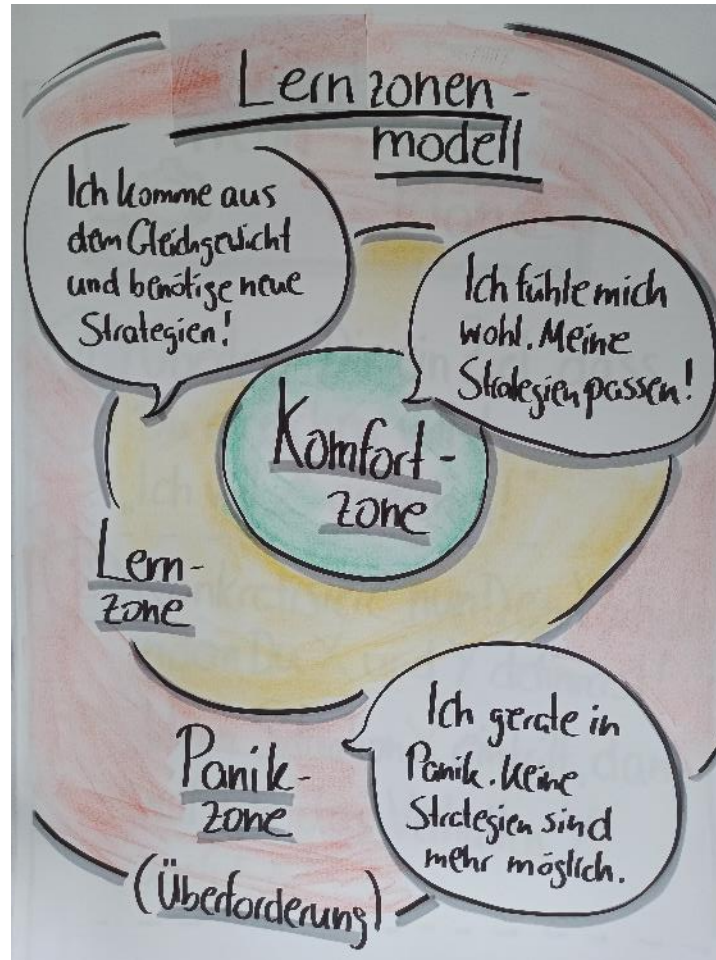 Lernzonen-
modell
Ich komme aus
dem Gleichgewicht
und benötige neue
Strategien!
Ich fühle mich
wohl. Meine
Strategien passen!
Komfort-
zone
Lern-
zone
Panik-
zone
(Überforderung)
Ich gerate in
Panik. Keine
Strategien sind
mehr möglich.